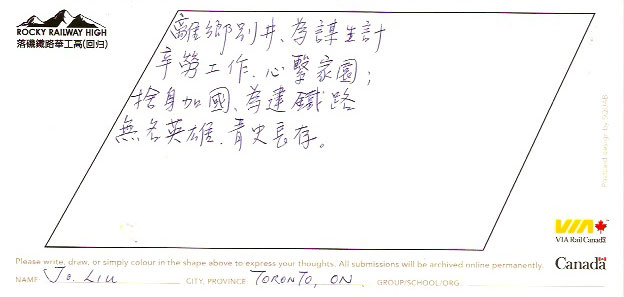 ROCKY RAILWAY HIGH
落磯鐵路華工高(回归)
離鄉別井、為謀生計
辛勞工作、心繫家園；
捨身加國、為建鐵路
無名英雄、青史長存。
Postcard design by SQUAB
VIA
VIA Rail Canada
Please write, draw, or simply colour in the shape above to express your thoughts. All submissions will be archived online permanently.
Canada
NAME Jo. LIU CITY, PROVINCE TORONTO, ON GROUP/SCHOOL/ORG.